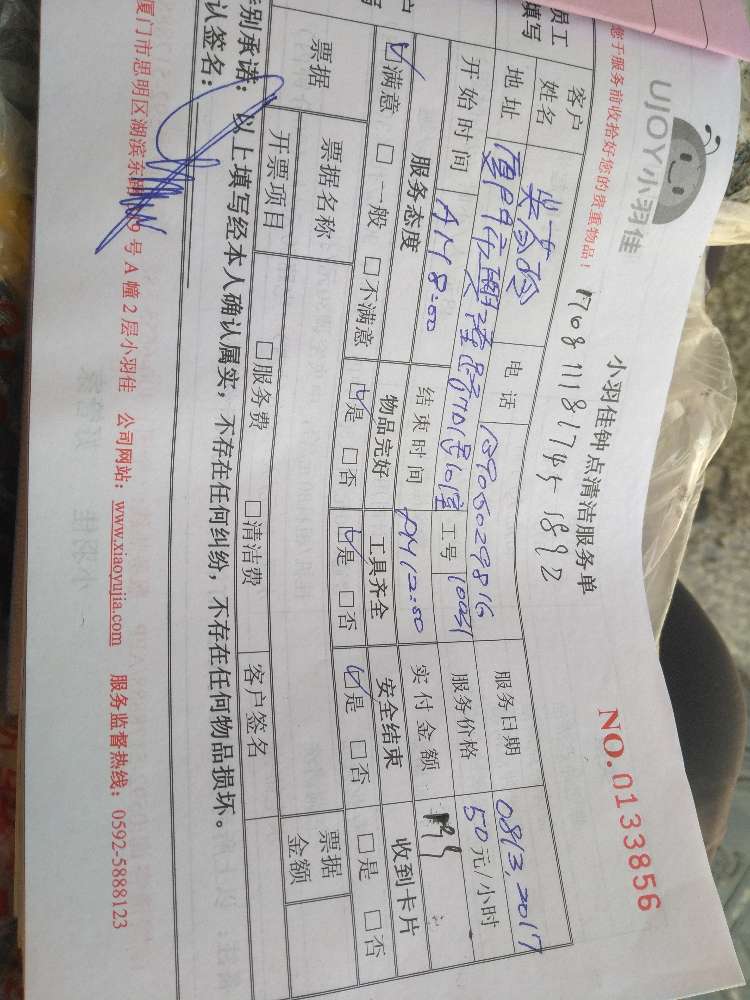 UJOY小羽佳
小羽佳钟点清洁服务单
NO.0133856
170811181745-1892
您于服务前收拾好您的贵重物品！
员工
填写
客户
姓名
电话
13905029816
服务日期
0813,2017
地址
工号
10031
服务价格
50元/小时
开始时间
AM 8:00
结束时间
实付金额
服务态度
物品完好
工具齐全
安全结束
收到卡片
☑满意 □一般 □不满意
☑是 □否
☑是 □否
☑是 □否
□是 □否
票据
票据名称
开票项目
□服务费 □清洁费
票据
金额
客户签名
特别承诺：以上填写经本人确认属实，不存在任何纠纷，不存在任何物品损坏。
认签名：
厦门市思明区湖滨东路 9号A幢2层小羽佳 公司网站：www.xiaoyujia.com 服务监督热线：0592-5888123